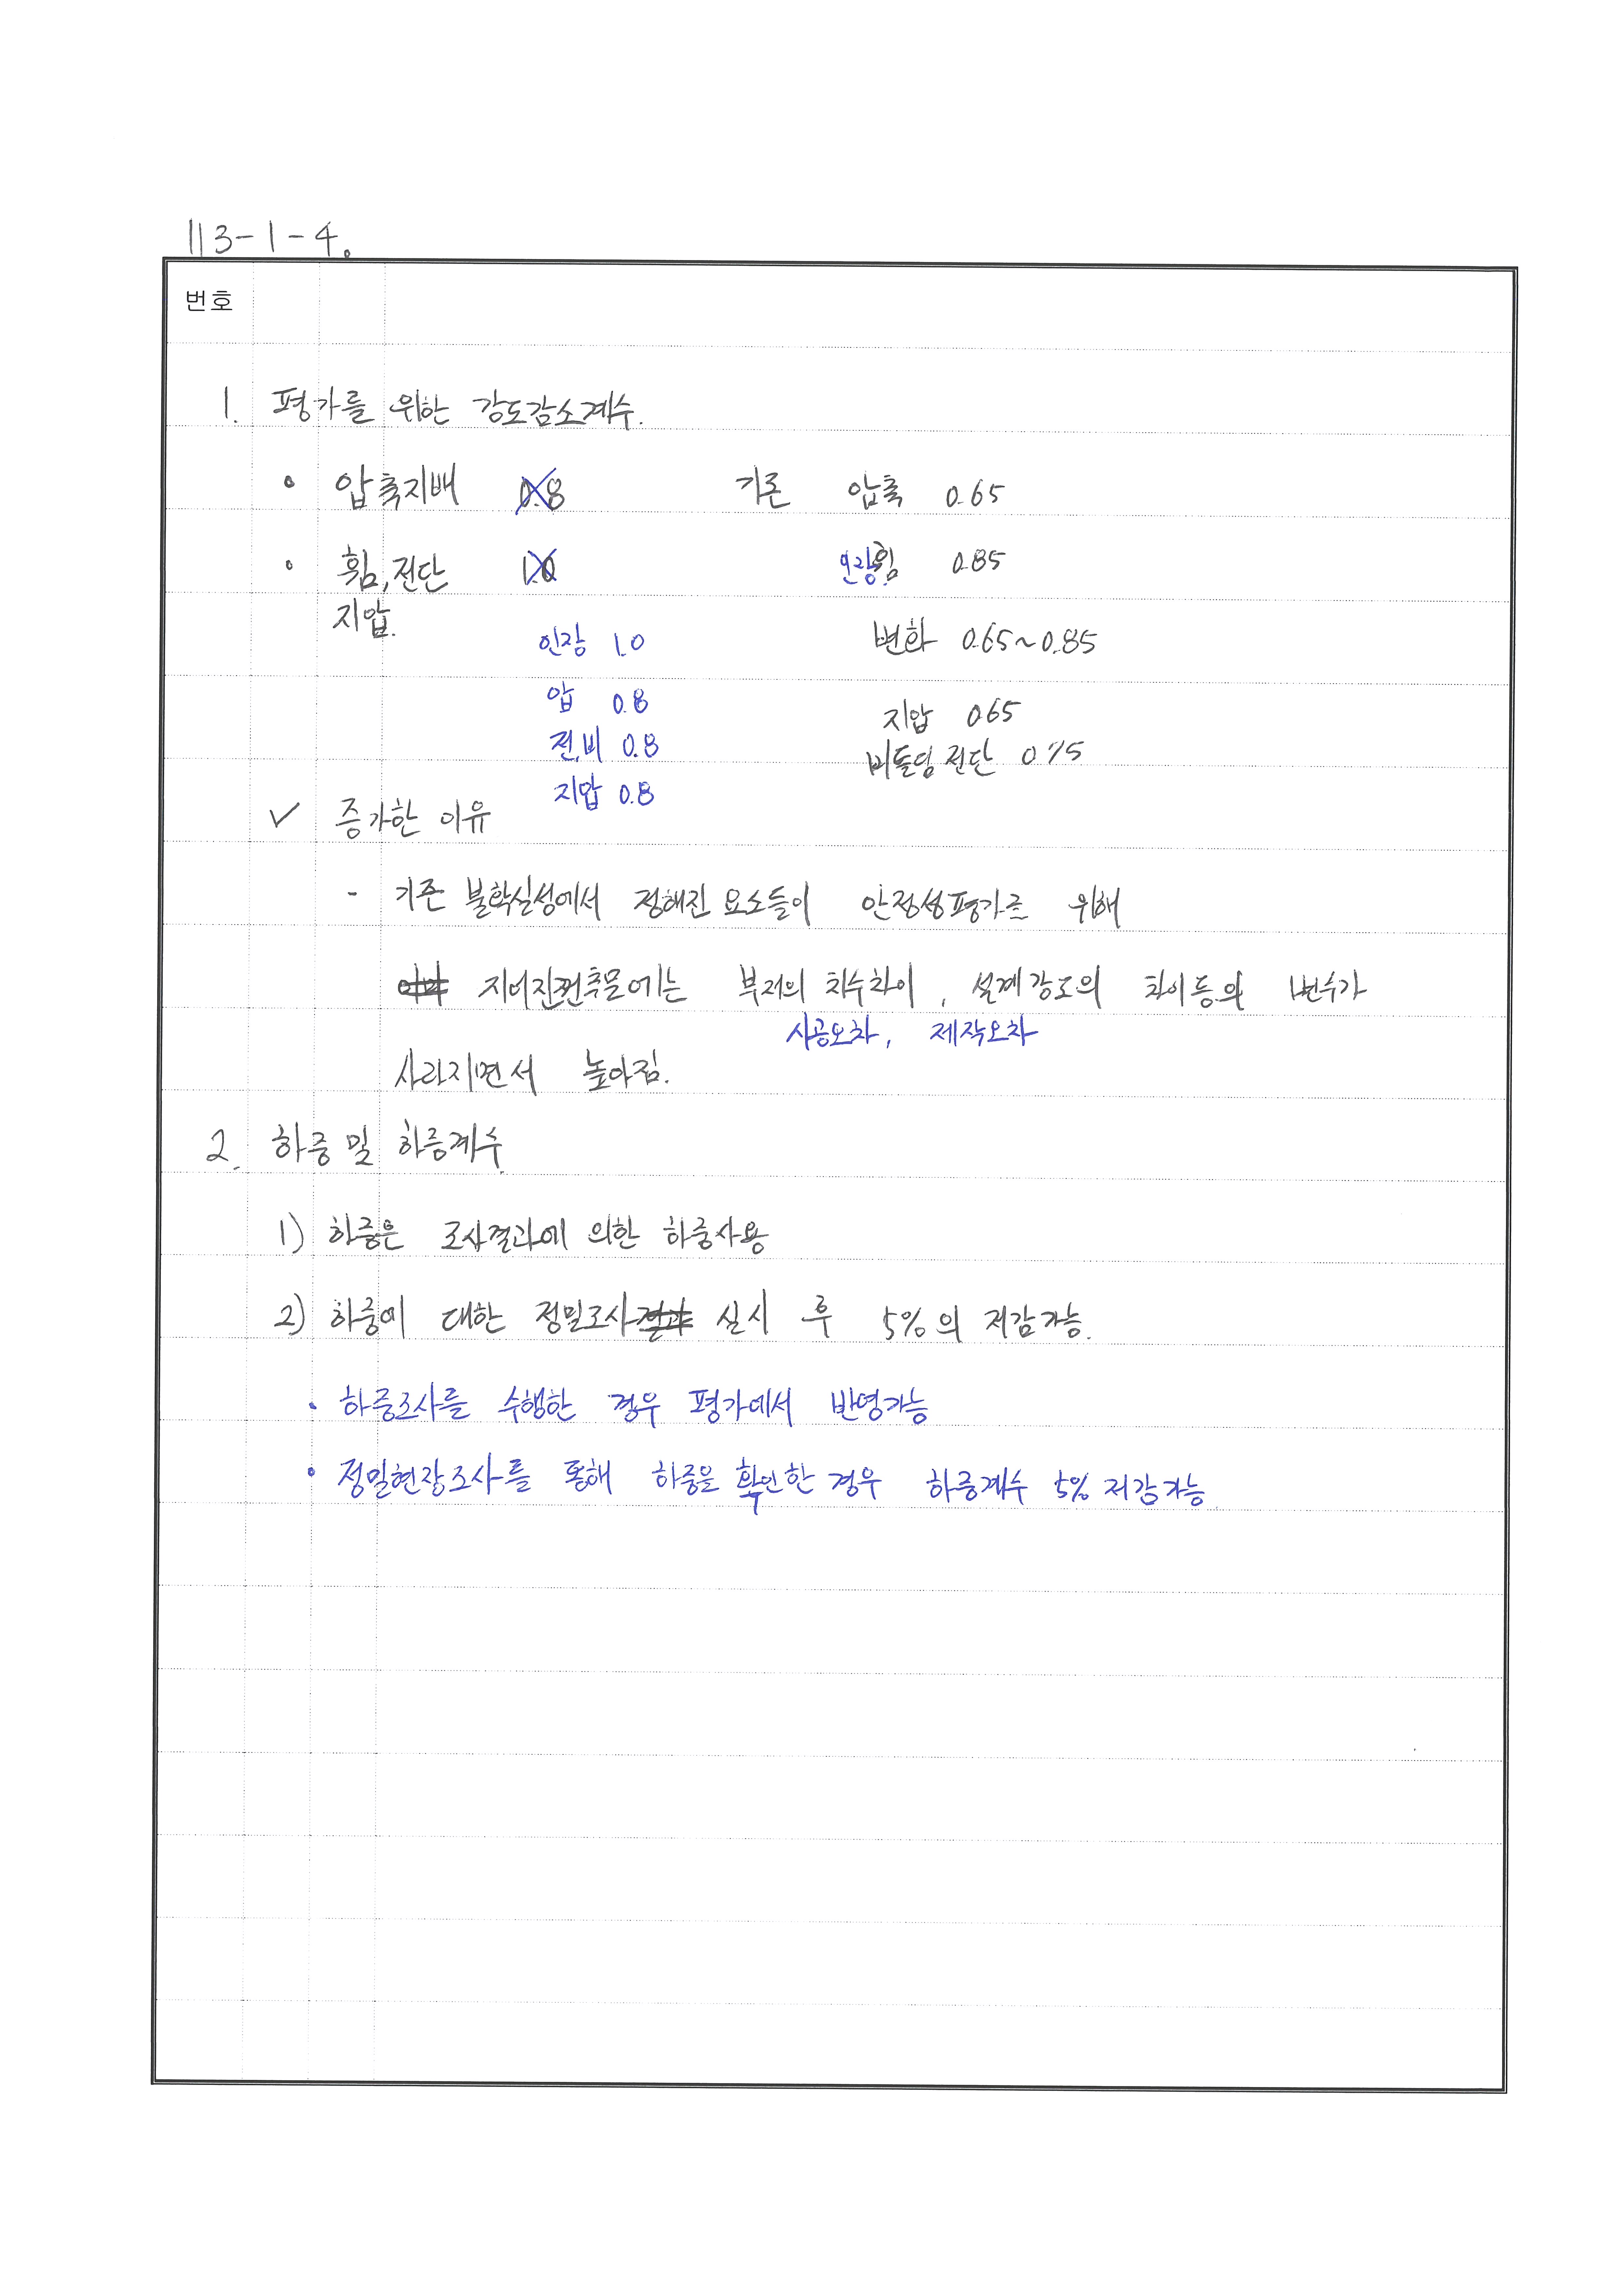 113-1-4.
번호
1. 평가를 위한 강도감소계수.
• 압축지배 0.8 기존 압축 0.65
• 휨, 전단 1.0 인장 휨 0.85
지압.
인장 1.0 변화 0.65~0.85
압 0.8 지압 0.65
전,비 0.8 비틀림 전단 0.75
지압 0.8
✓ 증가한 이유
- 기존 불확실성에서 정해진 요소들이 안정성평가를 위해
지어진건축물에는 부재의 치수차이, 설계강도의 차이등의 변수가
시공오차, 제작오차
사라지면서 높아짐.
2. 하중 및 하중계수.
1) 하중은 조사결과에 의한 하중사용
2) 하중에 대한 정밀조사결과 실시 후 5%의 저감가능.
• 하중조사를 수행한 경우 평가에서 반영가능
• 정밀현장조사를 통해 하중을 확인한 경우 하중계수 5% 저감가능